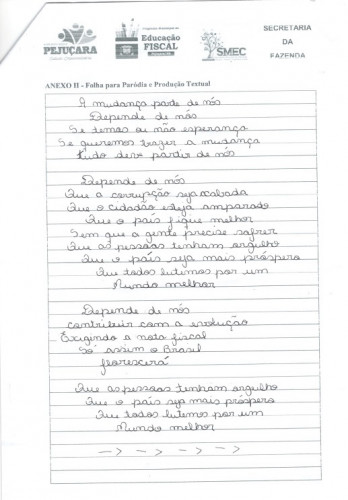 PEJUÇARA
Educação
FISCAL
SMEC
SECRETARIA
DA
FAZENDA
ANEXO II - Folha para Paródia e Produção Textual
A mudança parte de nós
Depende de nós
Se temos ou não esperança
Se queremos trazer a mudança
Tudo deve partir de nós
Depende de nós
Que a corrupção seja acabada
Que o cidadão esteja amparado
Que o país fique melhor
Sem que a gente precise sofrer
Que as pessoas tenham orgulho
Que o país seja mais próspero
Que todos lutemos por um
Mundo melhor
Depende de nós
contribuir com a evolução
Exigindo a nota fiscal
Só assim o Brasil
florescerá
Que as pessoas tenham orgulho
Que o país seja mais próspero
Que todos lutemos por um
Mundo melhor